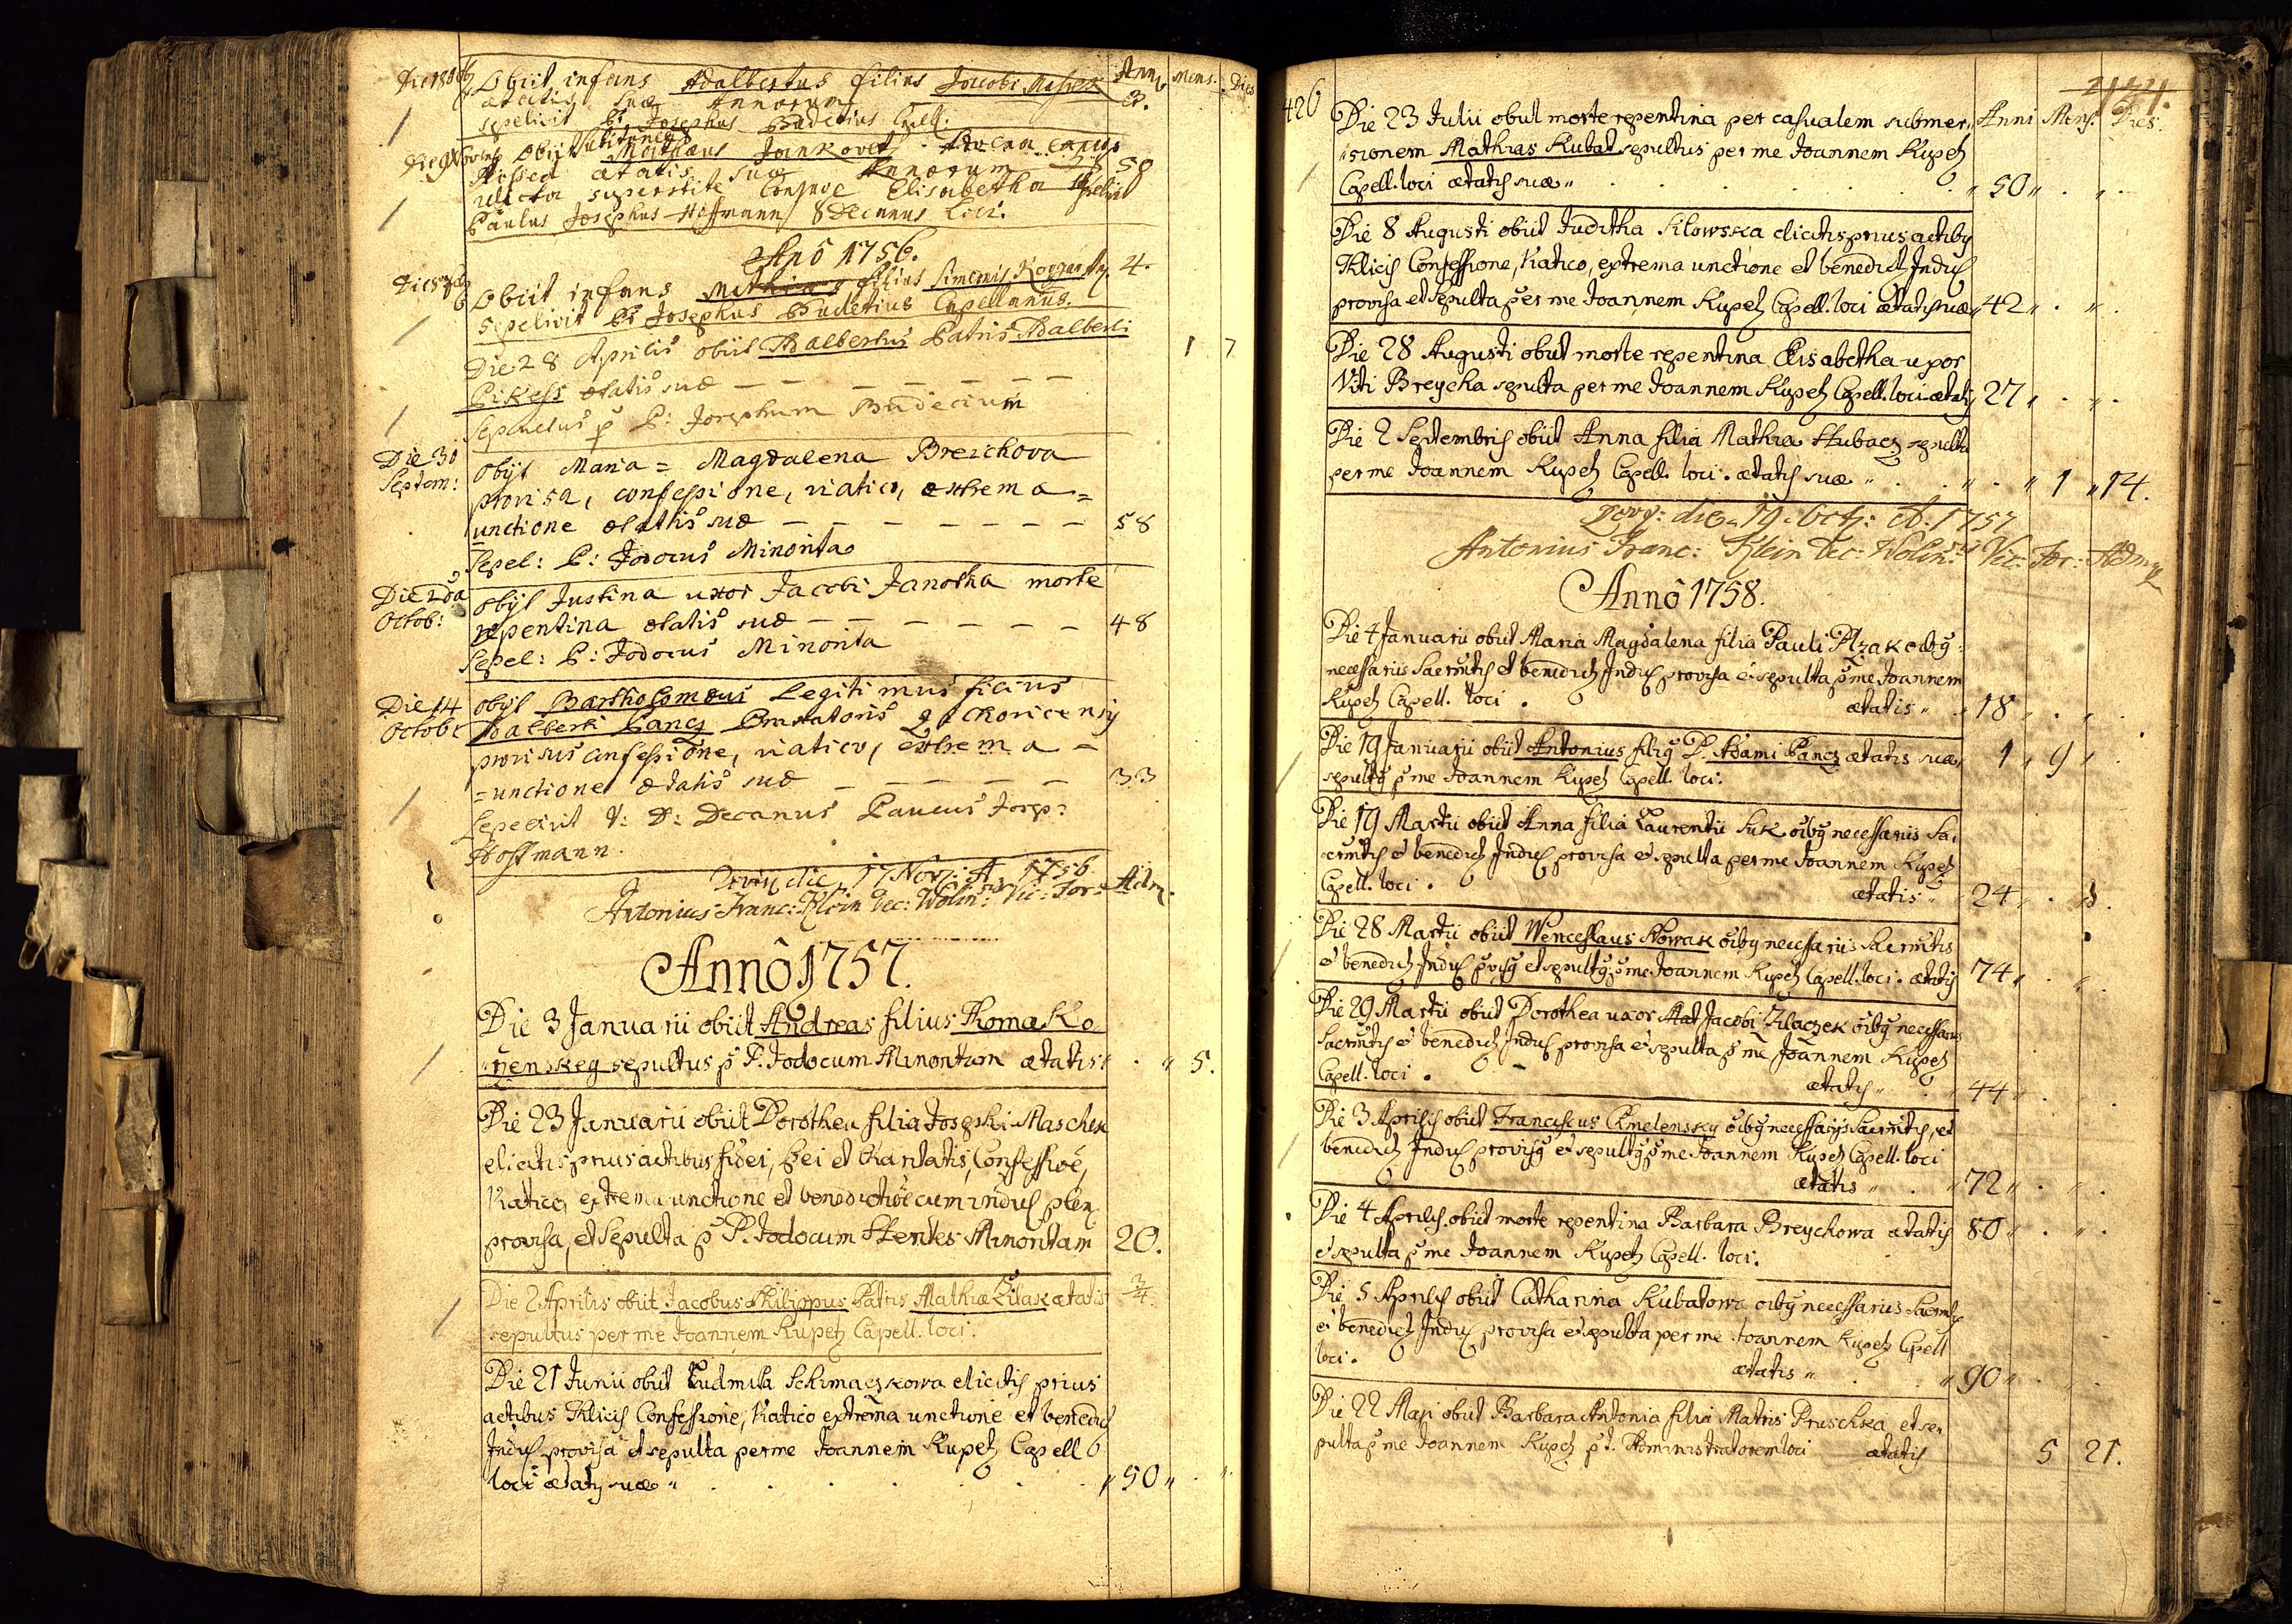 Obiit infans Adalbertus filius Jacobi Maschek Anni Mens. Dies
ætatis suæ Annorum 8.
sepelivit P. Josephus Budetius Capell.
Obiit Mathæus Jankovec
ætatis suæ Annorum 58
relicta superstite Conjuge Elisabetha
Paulus Josephus Hoffmann Decanus Loci.
Anô 1756.
Obiit infans Mathias filius Simonis 4.
Sepelivit P. Josephus Budetius Capellanus.
Die 28 Aprilis obiit Adalbertus Patris Adalberti 1 7
Pikess ætatis suæ
Sepultus p P: Josephum Budecium
Die 30 obijt Maria = Magdalena Breichova
Septem: provisa, confessione, viatico, extrema =
unctione ætatis suæ 58
Sepel: P: Jodocus Minorita
Die 2da obijt Justina uxor Jacobi Janotka morte
Octob: repentina ætatis suæ 48
Sepel: P: Jodocus Minorita
Die 14 obijt Bartholomæus Legitimus filius
Octob: Adalberti Pancz
provisus confessione, viatico, extrema =
= unctione ætatis suæ 33
Sepelivit V: D: Decanus Paulus Josep:
Hoffmann.
die 17 Nov: A 1756
Antonius Franc: Klein Dec: Wolin: Vic: For: Adm.
Annô 1757.
Die 3 Januarii obiit Andreas filius Thomæ Ko
rzenskeg sepultus p P. Jodocum Minoritam ætatis 5.
Die 23 Januarii obiit Dorothea filia Josephi Maschek
elicitis prius actibus fidei, spei et Charitatis, Confessioe,
Viatico, extrema unctione et benedictioe cum indul plen
provisa, et sepulta p P. Jodocum Stentes Minoritam 20.
Die 2 Aprilis obiit Jacobus Philippus Patris Mathiæ Zitak ætatis 3/4.
sepultus per me Joannem Kupetz Capell. loci.
Die 21 Junii obiit Ludmila Schimaczkowa elicitis prius
actibus Thlicis Confessione, Viatico extrema unctione et benedict
Indul provisa et sepulta per me Joannem Kupetz Capell
loci ætatis suæ 50
426
Die 23 Julii obiit morte repentina per casualem submer Anni Mens. Dies.
sionem Mathias Kubat sepultus per me Joannem Kupetz
Capell. loci ætatis suæ 50
Die 8 Augusti obiit Juditha Silowska elicitis prius actibus
Thlicis Confessione, Viatico, extrema unctione et benedict Indul
provisa et sepulta per me Joannem Kupetz Capell. loci ætatis suæ 42
Die 28 Augusti obiit morte repentina Elisabetha uxor
Viti Breycha sepulta per me Joannem Kupetz Capell. loci ætatis 27
Die 2 Septembris obiit Anna filia Mathiæ Hubacz sepulta
per me Joannem Kupetz Capell. loci. ætatis suæ 1 14.
die 19 Octb: A. 1757
Antonius Franc: Klein Dec: Wolin: Vic: For: Adm
Annô 1758.
Die 4 Januarii obiit Maria Magdalena filia Pauli Plzak oibg
necessariis Sacrmtis et benedict Indul provisa et sepulta p me Joannem
Kupetz Capell. loci. ætatis 18
Die 19 Januarii obiit Antonius filig P. Adami Pancz ætatis suæ 1 9
sepultg p me Joannem Kupetz Capell. loci.
Die 19 Martii obiit Anna filia Laurentii Suk oibg necessariis Sa
crmtis et benedict Indul provisa et sepulta per me Joannem Kupetz
Capell. loci. ætatis 24
Die 28 Martii obiit Wenceslaus Nowak oibg necessariis Sacrmtis
et benedict Indul provisg et sepultg p me Joannem Kupetz Capell. loci. ætatis 74
Die 29 Martii obiit Dorothea uxor Jacobi Klaczek oibg necessariis
Sacrmtis et benedict Indul provisa et sepulta p me Joannem Kupetz
Capell. loci. ætatis 44
Die 3 Aprilis obiit Franciscus Chmelensky oibg necessarijs Sacrmtis, et
benedict Indul provisg et sepultg p me Joannem Kupetz Capell. loci
ætatis 72
Die 4 Aprilis obiit morte repentina Barbara Breychowa ætatis 80
et sepulta p me Joannem Kupetz Capell. loci.
Die 5 Aprilis obiit Catharina Kubatowa oibg necessariis Sacrmtis
et benedict Indul provisa et sepulta per me Joannem Kupetz Capell
loci. ætatis 90
Die 22 Maji obiit Barbara Antonia filia Matris Pruschka et se
pulta p me Joannem Kupetz p t. Administratorem loci ætatis 5 21.